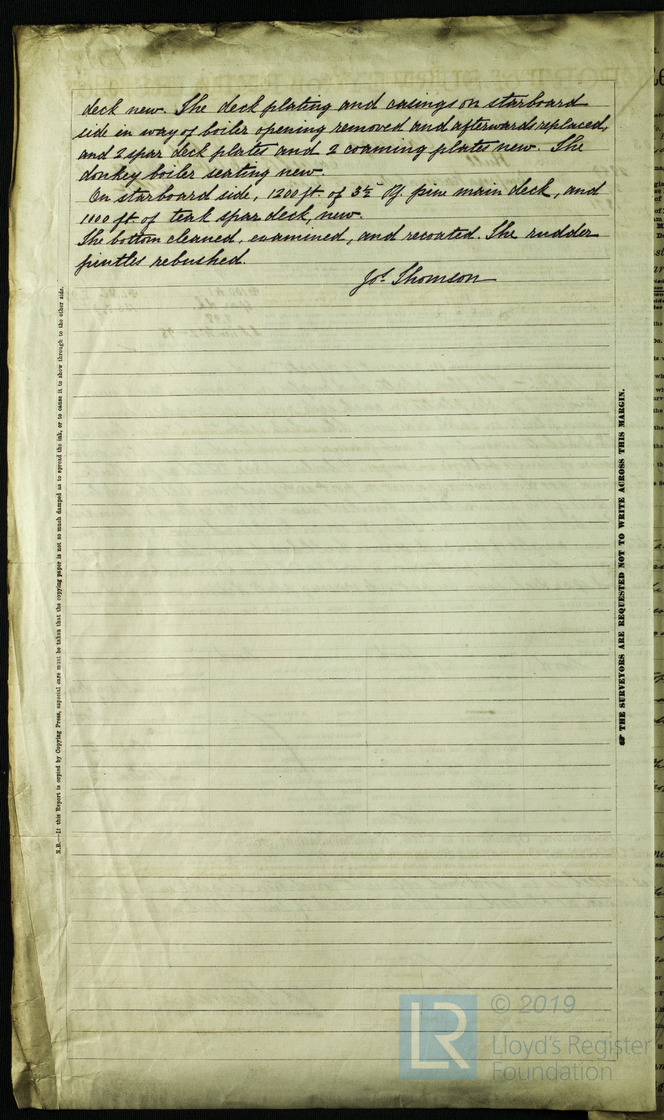 deck new. The deck plating and casings on starboard
side in way of boiler opening removed and afterwards replaced,
and 2 spar deck plates and 2 coaming plates new. The
donkey boiler seating new.
On starboard side, 1200 ft. of 3½ Y. pine main deck, and
1100 ft of teak spar deck, new.
The bottom cleaned, examined, and recoated. The rudder
pintles rebushed.
Jos. Thomson
N.B.—If this Report is copied by Copying Press, especial care must be taken that the copying paper is not so much damped as to spread the ink, or to cause it to show through to the other side.
☞ THE SURVEYORS ARE REQUESTED NOT TO WRITE ACROSS THIS MARGIN.
LR
© 2019
Lloyd's Register
Foundation